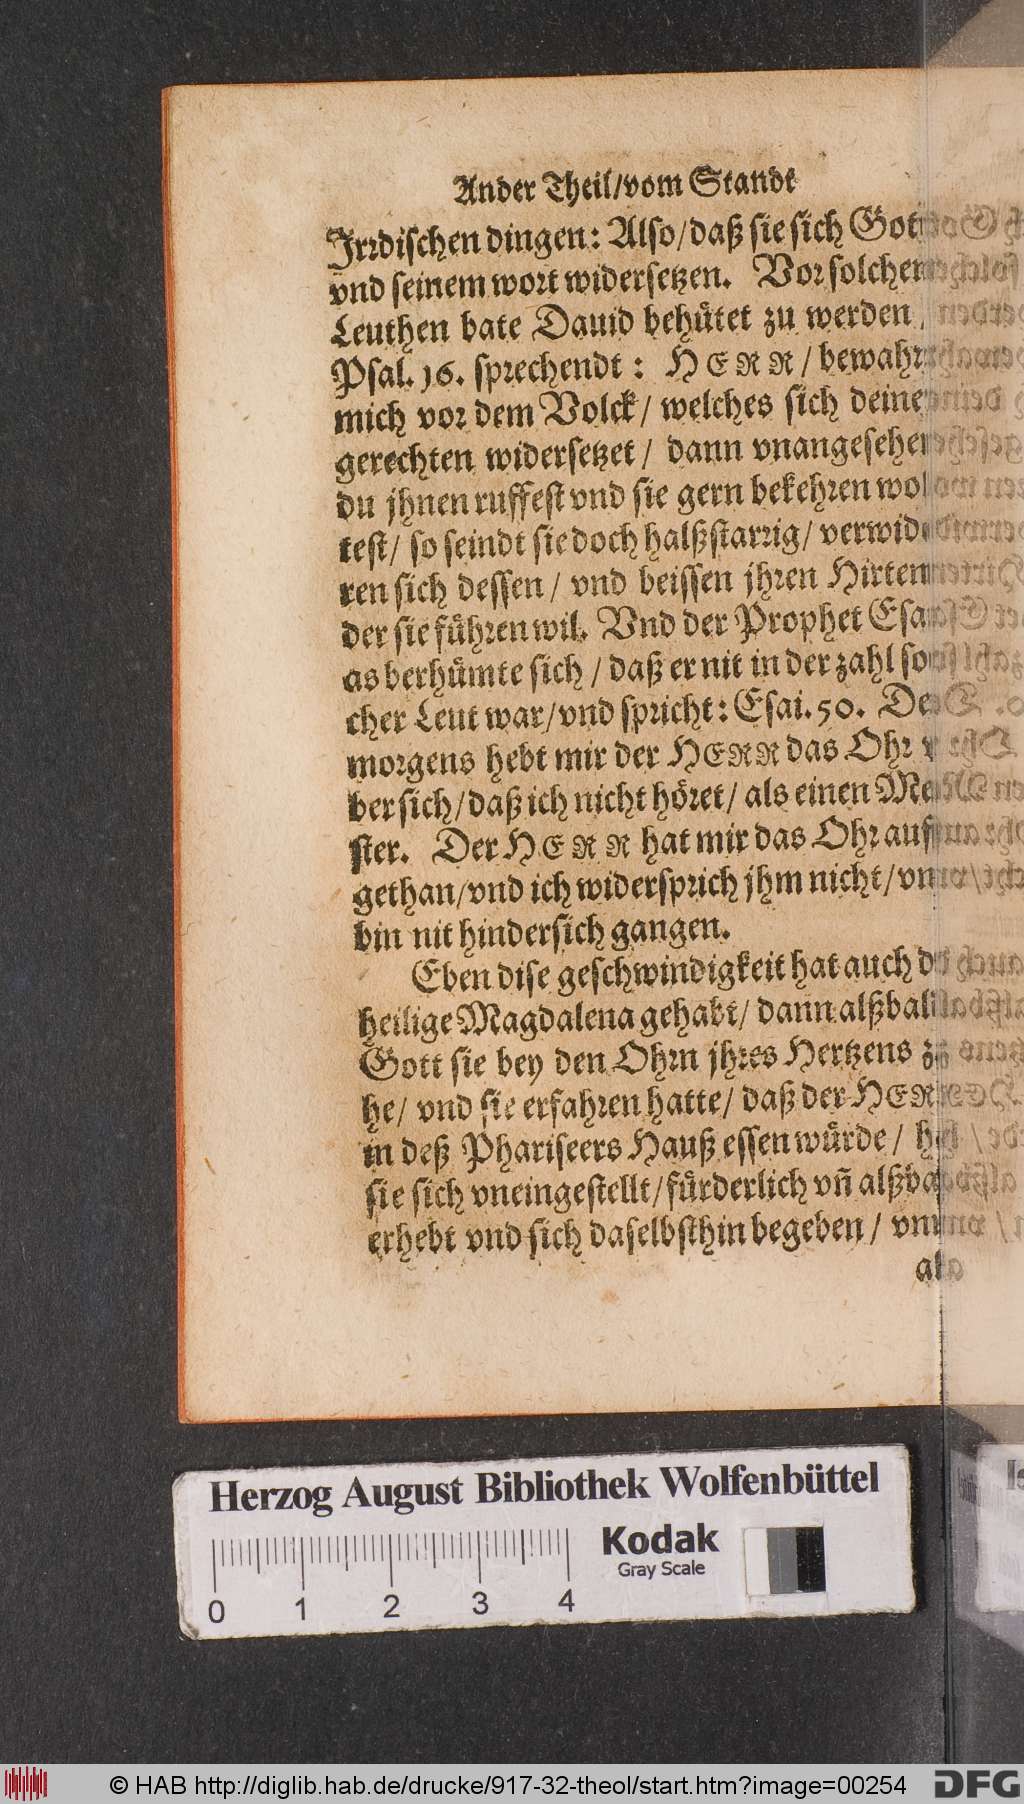 Ander Theil/vom Standt
Irrdischen dingen: Also/daß sie sich Gott
vnd seinem wort widersetzen. Vor solchen
Leuthen bate Dauid behütet zu werden
Psal. 16. sprechendt: HERR/bewahr
mich vor dem Volck/ welches sich deine
gerechten widersetzet/ dann vnangesehen
du jhnen ruffest vnd sie gern bekehren wol
test/ so seindt sie doch halßstarrig/ verwide
ren sich dessen/ vnd beissen jhren Hirten
der sie führen wil. Vnd der Prophet Esa
as berhümte sich/ daß er nit in der zahl sol
cher Leut war/vnd spricht: Esai. 50. Des
morgens hebt mir der HERR das Ohr v
ber sich/daß ich nicht höret/ als einen Mei
ster. Der HERR hat mir das Ohr auff
gethan/vnd ich widersprich jhm nicht/vnn
bin nit hindersich gangen.
Eben dise geschwindigkeit hat auch di
heilige Magdalena gehabt/ dann alßbald
Gott sie bey den Ohrn jhres Hertzens zo
he/ vnd sie erfahren hatte/ daß der HERR
in deß Phariseers Hauß essen würde/
sie sich vneingestellt/fürderlich vñ alßbald
erhebt vnd sich daselbsthin begeben/ vnn
Herzog August Bibliothek Wolfenbüttel
Kodak
Gray Scale
0 1 2 3 4
© HAB http://diglib.hab.de/drucke/917-32-theol/start.htm?image=00254
DFG